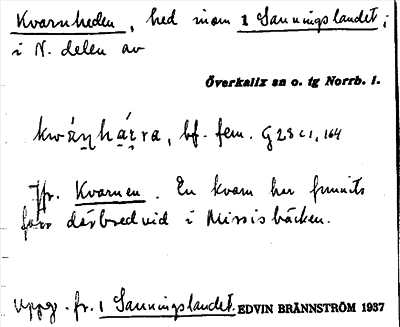 Kvarnheden, hed inom 1 Sanningslandet;
i N. delen av
Överkalix sn o. tg Norrb. l.
bf. fem. G 28 c 1, 164
Jfr. Kvarnen. En kvarn har funnits
förr därbredvid i Missisbäcken.
Uppg. fr. 1 Sanningslandet. EDVIN BRÄNNSTRÖM 1937